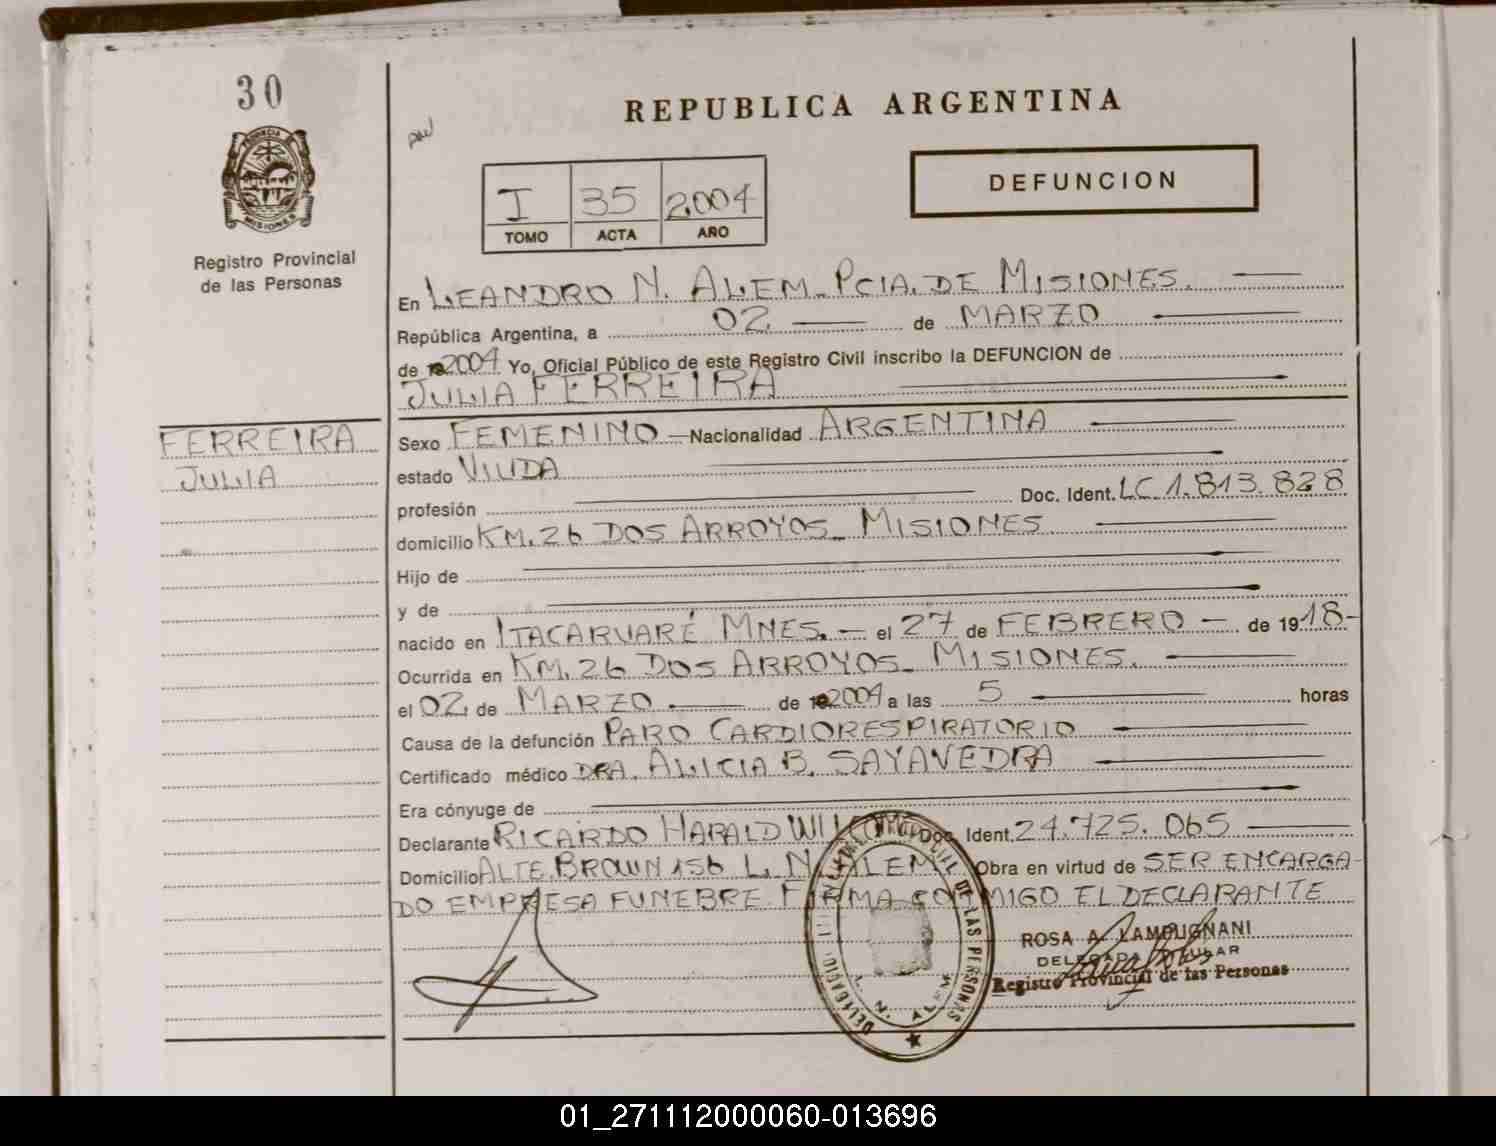 30
REPUBLICA ARGENTINA
PROVINCIA
MISIONES
Registro Provincial
de las Personas
I 35 2004
TOMO ACTA AÑO
DEFUNCION
En LEANDRO N. ALEM_PCIA. DE MISIONES.
República Argentina, a 02 de MARZO
de 2004 Yo, Oficial Público de este Registro Civil inscribo la DEFUNCION de
JULIA FERREIRA
FERREIRA
JULIA
Sexo FEMENINO — Nacionalidad ARGENTINA
estado VIUDA
profesión Doc. Ident. LC. 1.813.828
domicilio KM. 26 DOS ARROYOS_ MISIONES
Hijo de
y de
nacido en ITACARUARÉ MNES. — el 27 de FEBRERO — de 1918-
Ocurrida en KM. 26 DOS ARROYOS_ MISIONES.
el 02 de MARZO de 2004 a las 5 horas
Causa de la defunción PARO CARDIORESPIRATORIO
Certificado médico DRA. ALICIA B. SAYAVEDRA
Era cónyuge de
Declarante RICARDO HARALD Doc. Ident. 24.725.065
Domicilio ALTE. BROWN 156 L. N. ALEM Obra en virtud de SER ENCARGA-
DO EMPRESA FUNEBRE. FIRMA CONMIGO EL DECLARANTE
ROSA A. LAMPUGNANI
DELEGADA TITULAR
Registro Provincial de las Personas
DE LAS PERSONAS
L. N. ALEM
01_271112000060-013696